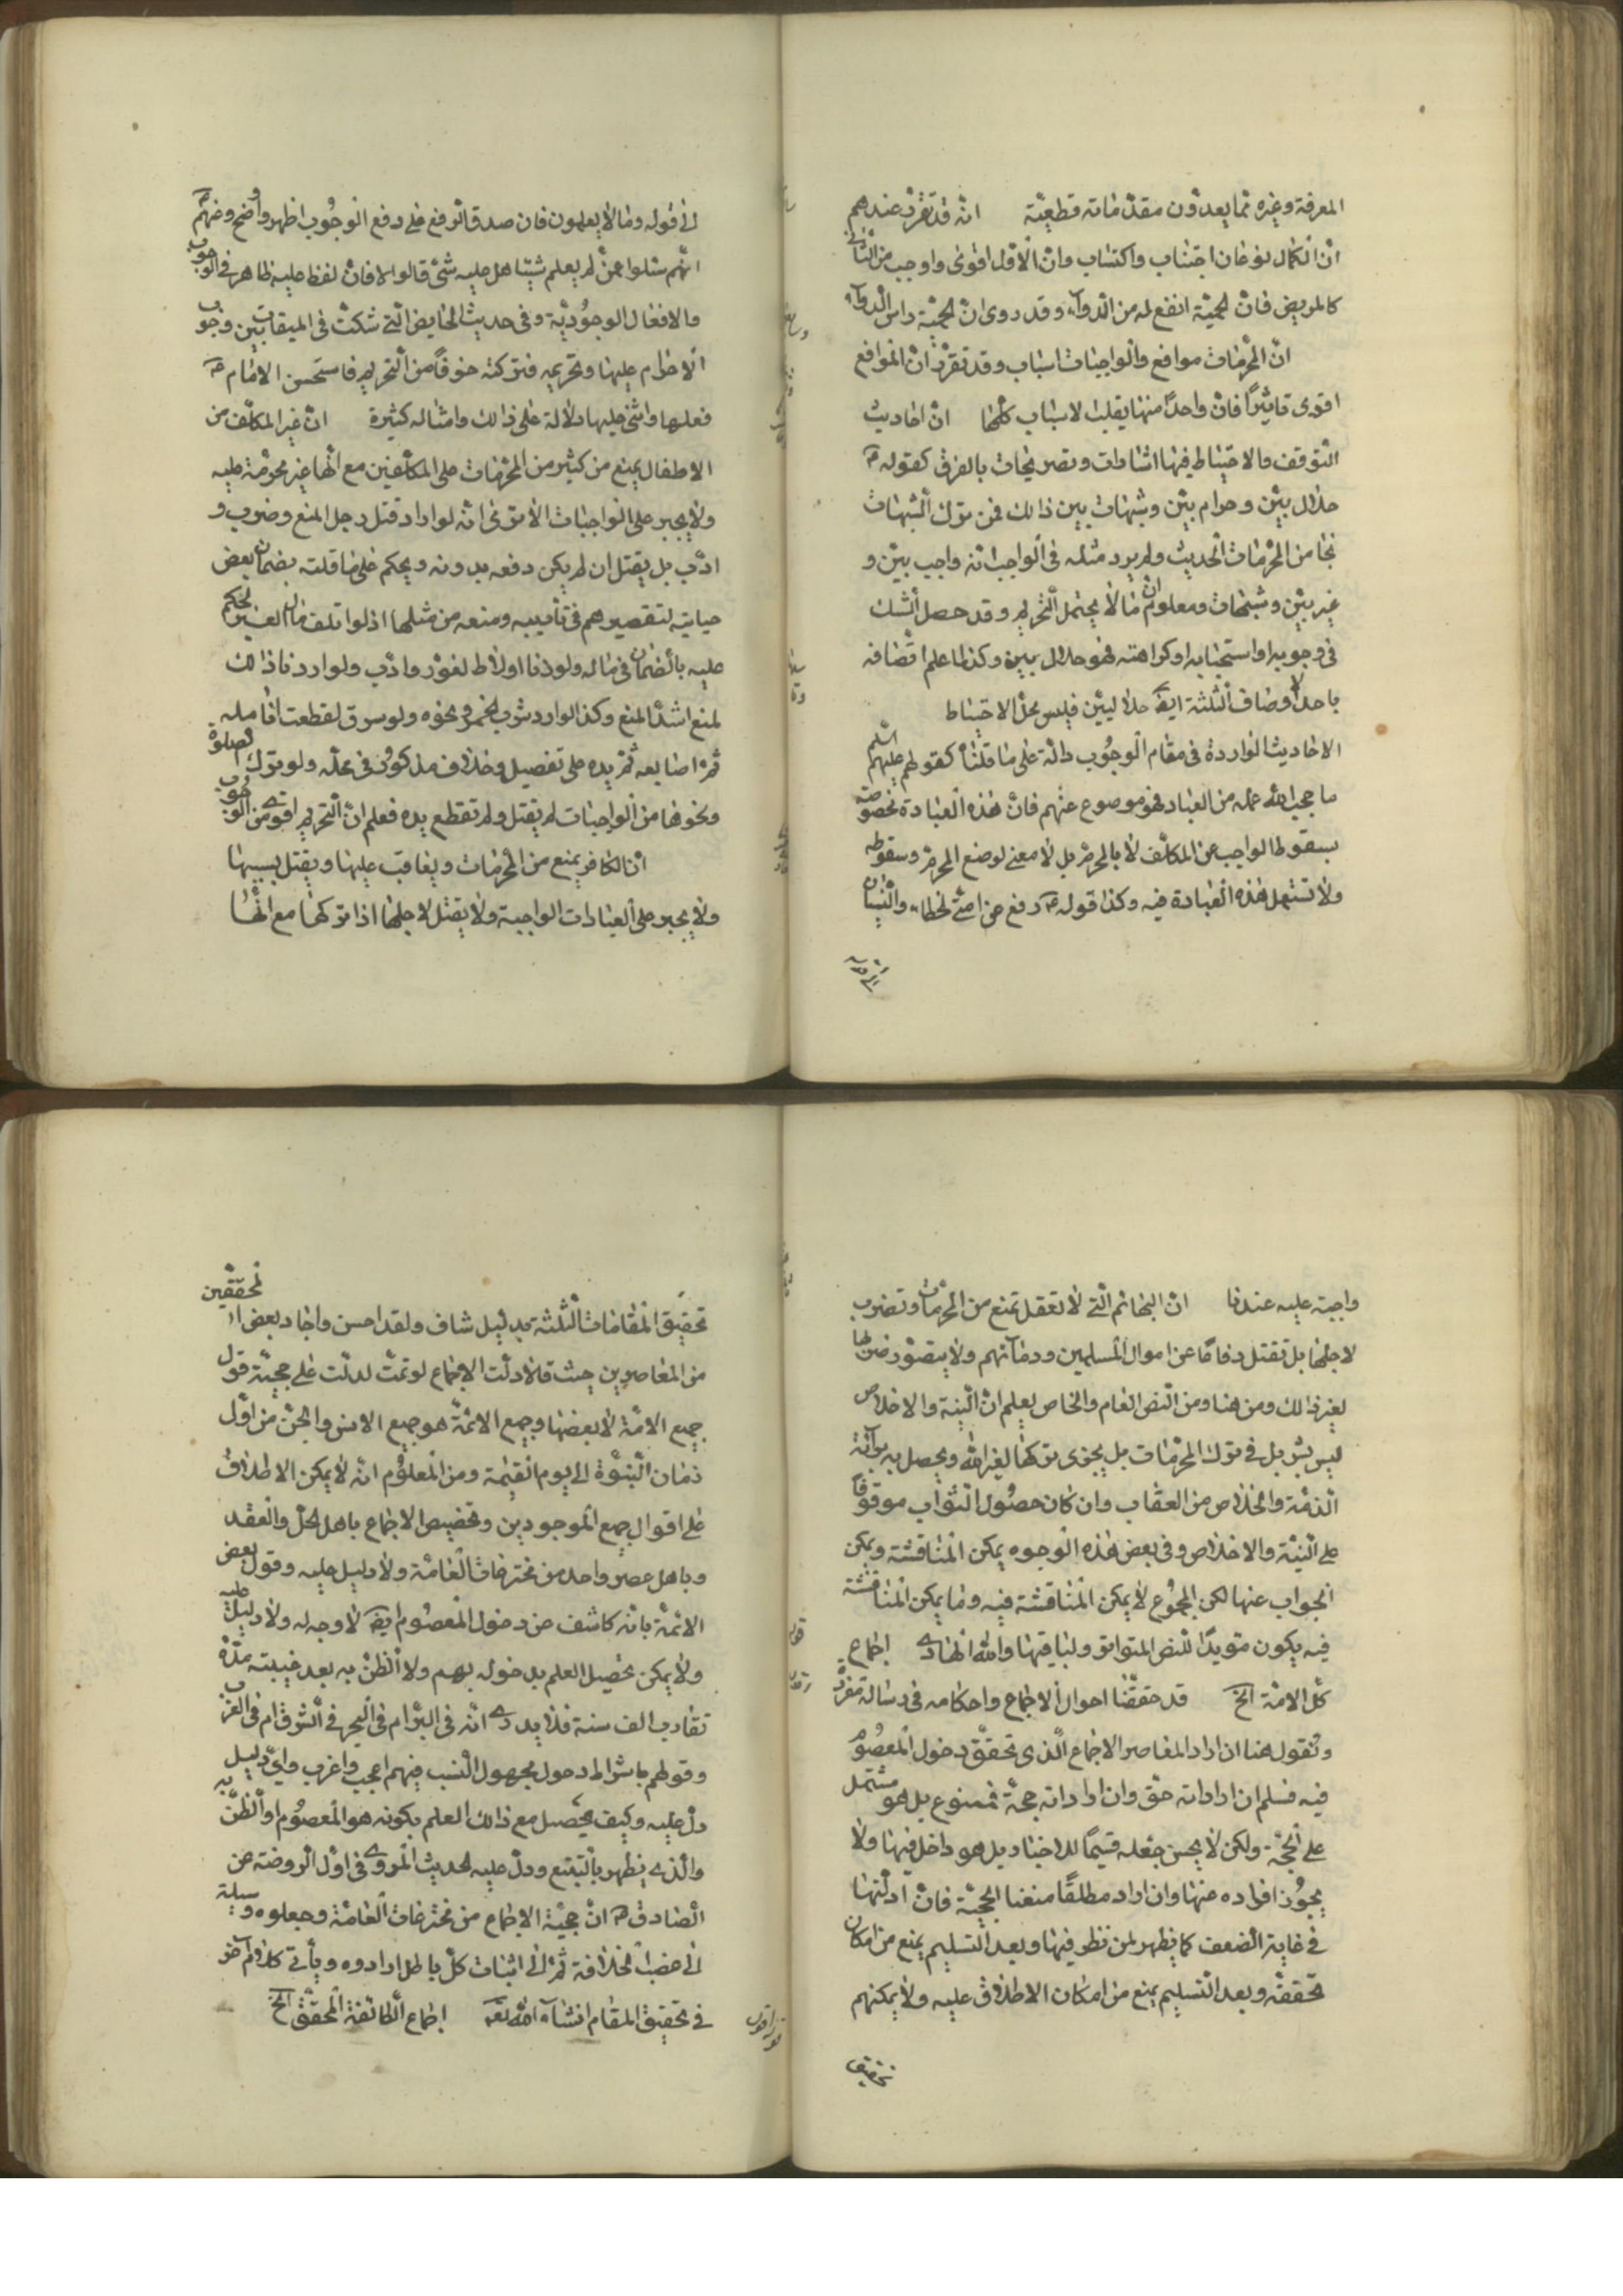 المعرفة وغيره مما يعدون مقدماته قطعيّة انّه قد تقرّر عندهم
انّ الكمال نوعان اجتناب واكتساب وانّ الاوّل اقوى واوجب من الثاني
كالمريض فانّ الحميّة انفع له من الدواء وقد روى انّ الحميّة راس الدواء
انّ المحرّمات موانع والواجبات اسباب وقد تقرّر انّ الموانع
اقوى تاثيراً فانّ واحداً منها يقلب الاسباب كلّها انّ احاديث
التوقف والاحتياط فيها اشارات وتصريحات بالفرق كقوله ع
حلال بيّن وحرام بيّن وشبهات بين ذالك فمن ترك الشبهات
نجا من المحرّمات الحديث ولم يرد مثله في الواجب انّه واجب بيّن و
غير بيّن وشبهات ومعلوم انّ ما لا يحتمل التحريم وقد حصل الشك
في وجوبه او استحبابه او كراهته فهو حلال بيّن وكذا ما علم اتّصافه
باحد الاوصاف الثلثة ايضا حلال بيّن فليس محل الاحتياط
الاحاديث الواردة في مقام الوجوب دالّة على ما قلناه كقولهم عليهم السلم
ما حجب الله علمه من العباد فهو موضوع عنهم فانّ هذه العبادة مخصوصة
بسقوط الواجب عن المكلّف لا بالمحرّم بل لا معنى لوضع المحرّم وسقوطه
ولا تستعمل هذه العبادة فيه وكذا قوله ع رفع عن امتي الخطاء والنسيان
الى قوله وما لا يعلمون فان صدق الرفع على دفع الوجوب اظهر واوضح وعنهم ع
انّهم سئلوا عمّن لم يعلم شيئا هل عليه شئ قالوا لا فانّ لفظ عليه ظاهر في الوجوب
والافعال الوجوديّة وفي حديث الحايض الّتي شكّت في الميقات بين وجوب
الاحرام عليها وتحريمه فتركته خوفاً من التحريم فاستحسن الامام ع
فعلها واثنى عليها دلالة على ذالك وامثاله كثيرة انّ غير المكلّف من
الاطفال يمنع من كثير من المحرّمات على المكلّفين مع انّها غير محرّمة عليه
ولا يجبر على الواجبات الا ترى انّه لو اراد قتل رجل لمنع وضرب و
ادّب بل يقتل ان لم يكن دفعه بدونه ويحكم على عاقلته بضمان بعض
جناياته لتقصيرهم في تأديبه ومنعه من مثلها اذ لو اتلف مال الغير لحكم
عليه بالضمان في ماله ولو زنا او لاط لعزّر وادّب ولو اردنا ذالك
لمنع اشدّ المنع وكذا لو اراد شرب الخمر ونحوه ولو سرق لقطعت انامله
ثمّ اصابعه ثمّ يده على تفصيل وخلاف مذكور في محلّه ولو ترك الصلوة
ونحوها من الواجبات لم يقتل ولم تقطع يده فعلم انّ التحريم اقوى من الوجوب
انّ الكافر يمنع من المحرّمات ويعاقب عليها ويقتل بسببها
ولا يجبر على العبادات الواجبة ولا يقتل لاجلها اذا تركها مع انّها
واجبة عليه عندنا انّ البهائم الّتي لا تعقل تمنع من المحرّمات وتضرب
لاجلها بل تقتل دفاعًا عن اموال المسلمين ودمائهم ولا يتصوّر ضربها
لغير ذالك ومن هنا ومن النص العام والخاص يعلم انّ النية والاخلاص
ليس بشرط في ترك المحرّمات بل يجزى تركها لغير الله ويحصل به براءة
الذمّة والخلاص من العقاب وان كان حصول الثواب موقوفاً
على النيّة والاخلاص وفي بعض هذه الوجوه يمكن المناقشة ويمكن
الجواب عنها لكن المجموع لا يمكن المناقشة فيه وما يمكن المناقشة
فيه يكون مؤيّدًا للنص المتواتر ولباقيها والله الهادى اجماع
كلّ الامّة الخ قد حققّنا احوال الاجماع واحكامه في رسالة مفردة
ونقول هنا ان اراد المعاصر الاجماع الّذى تحقّق دخول المعصوم
فيه فسلم ان اراد انّه حقّ وان اراد انّه حجّة فممنوع بل هو مشتمل
على الحجّة ولكن لا يحسن جعله قسيمًا للاخبار بل هو داخل فيها ولا
يجوز افراده عنها وان اراد مطلقًا منعنا الحجيّة فانّ ادلّتها
في غاية الضعف كما يظهر لمن نظر فيها وبعد التسليم يمنع من امكان
تحقّقه وبعد التسليم يمنع من امكان الاطلاق عليه ولا يمكنهم
تحقيق
تحقيق المقامات الثلثة بدليل شاف ولقد احسن واجاد بعض المحقّقين
من المعاصرين حيث قال ادلّة الاجماع لو تمّت لدلّت على حجيّة قول
جميع الامّة لا بعضها وجميع الامّة هو جميع الانس والجنّ من اوّل
زمان النبوّة الى يوم القيمة ومن المعلوم انّه لا يمكن الاطلاق
على اقوال جميع الموجودين وتخصيص الاجماع باهل الحلّ والعقد
وباهل عصر واحد من مخترعات العامّة ولا دليل عليه وقول بعض
الائمّة بانّه كاشف عن دخول المعصوم ايضا لا وجه له ولا دليل عليه
ولا يمكن تحصيل العلم بدخوله بهم ولا الظنّ به بعد غيبته مدّة
تقارب الف سنة فلا يدرى انّه في البرّ ام في البحر في الشرق ام في الغرب
وقولهم باشتراط دخول مجهول النسب فيهم اعجب واغرب واىّ دليل
دلّ عليه وكيف يحصل مع ذالك العلم بكونه هو المعصوم او الظنّ به
والّذى يظهر بالتتبّع ودلّ عليه الحديث المروى في اوّل الروضة عن
الصادق ع انّ حجيّة الاجماع من مخترعات العامّة وجعلوه وسيلة
الى غصب الخلافة ثمّ الى اثبات كلّ باطل ارادوه ويأتى كلام آخر
في تحقيق المقام انشاء الله تعه اجماع الطائفة المحقّة الخ